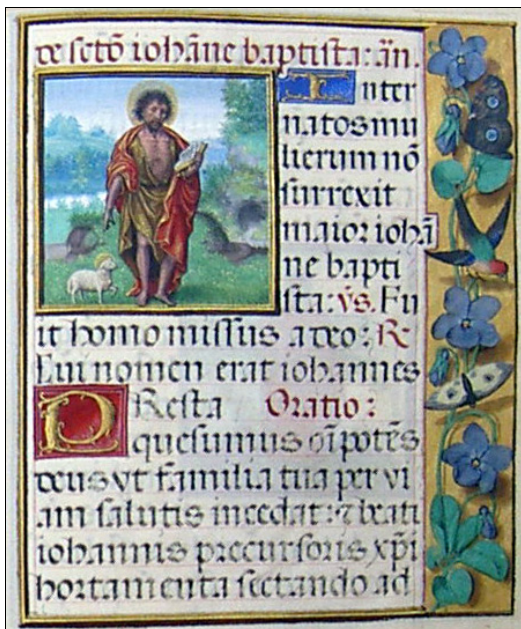 de sctō iohāne baptista: añ.
Inter
natos mu
lierum nō
surrexit
maior iohā
ne bapti
sta: vs. Fu
it homo missus a deo: R
Cui nomen erat iohannes
PResta Oratio:
quesumus oīpotēs
deus vt familia tua per vi
am salutis incedat: ⁊ beati
iohannis precursoris xp̄i
hortamenta sectando ad